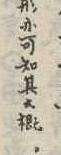 形亦可知其大概。